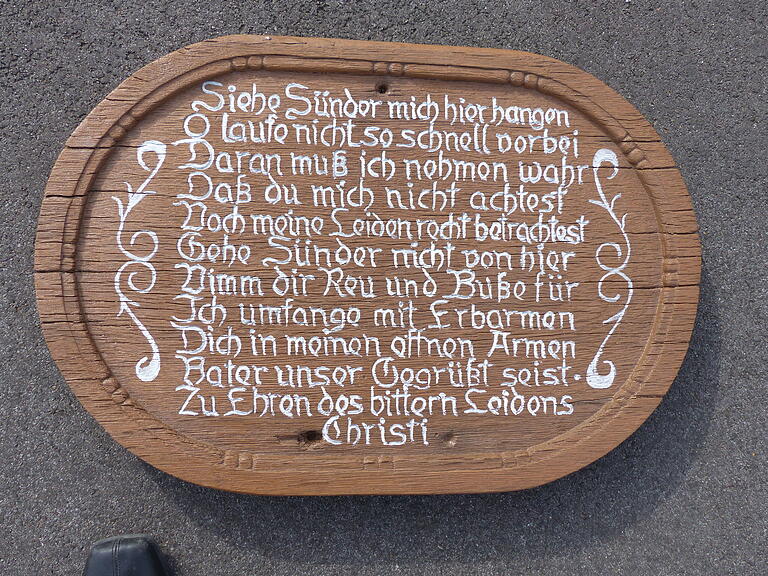 Siehe Sünder mich hier hangen
O laufe nicht so schnell vorbei
Daran muß ich nehmen wahr
Daß du mich nicht achtest
Noch meine Leiden recht betrachtest
Gehe Sünder nicht von hier
Nimm dir Reu und Buße für
Ich umfange mit Erbarmen
Dich in meinen offnen Armen
Vater unser Gegrüßt seist.
Zu Ehren des bittern Leidens
Christi